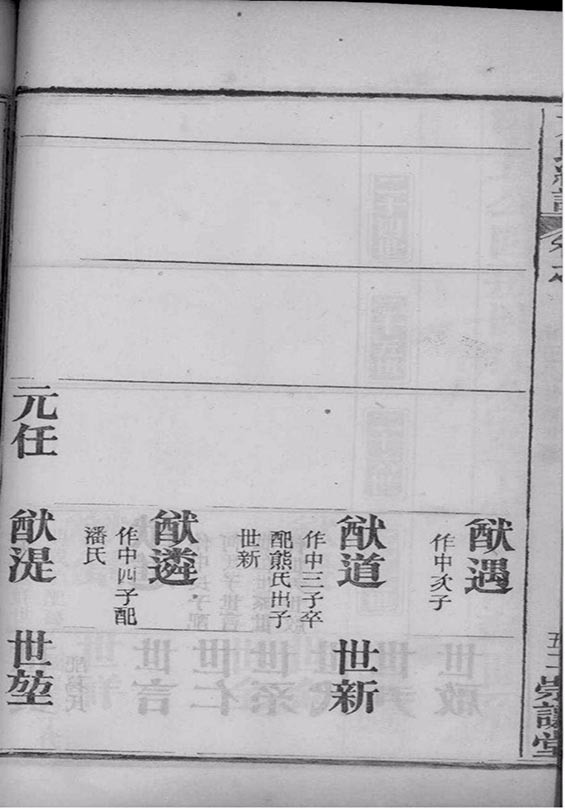 崇讓堂
猷遇
作中次子
猷道
作中三子卒
配熊氏出子
世新
世新
猷遴
作中四子配
潘氏
元任
猷湜
世堃